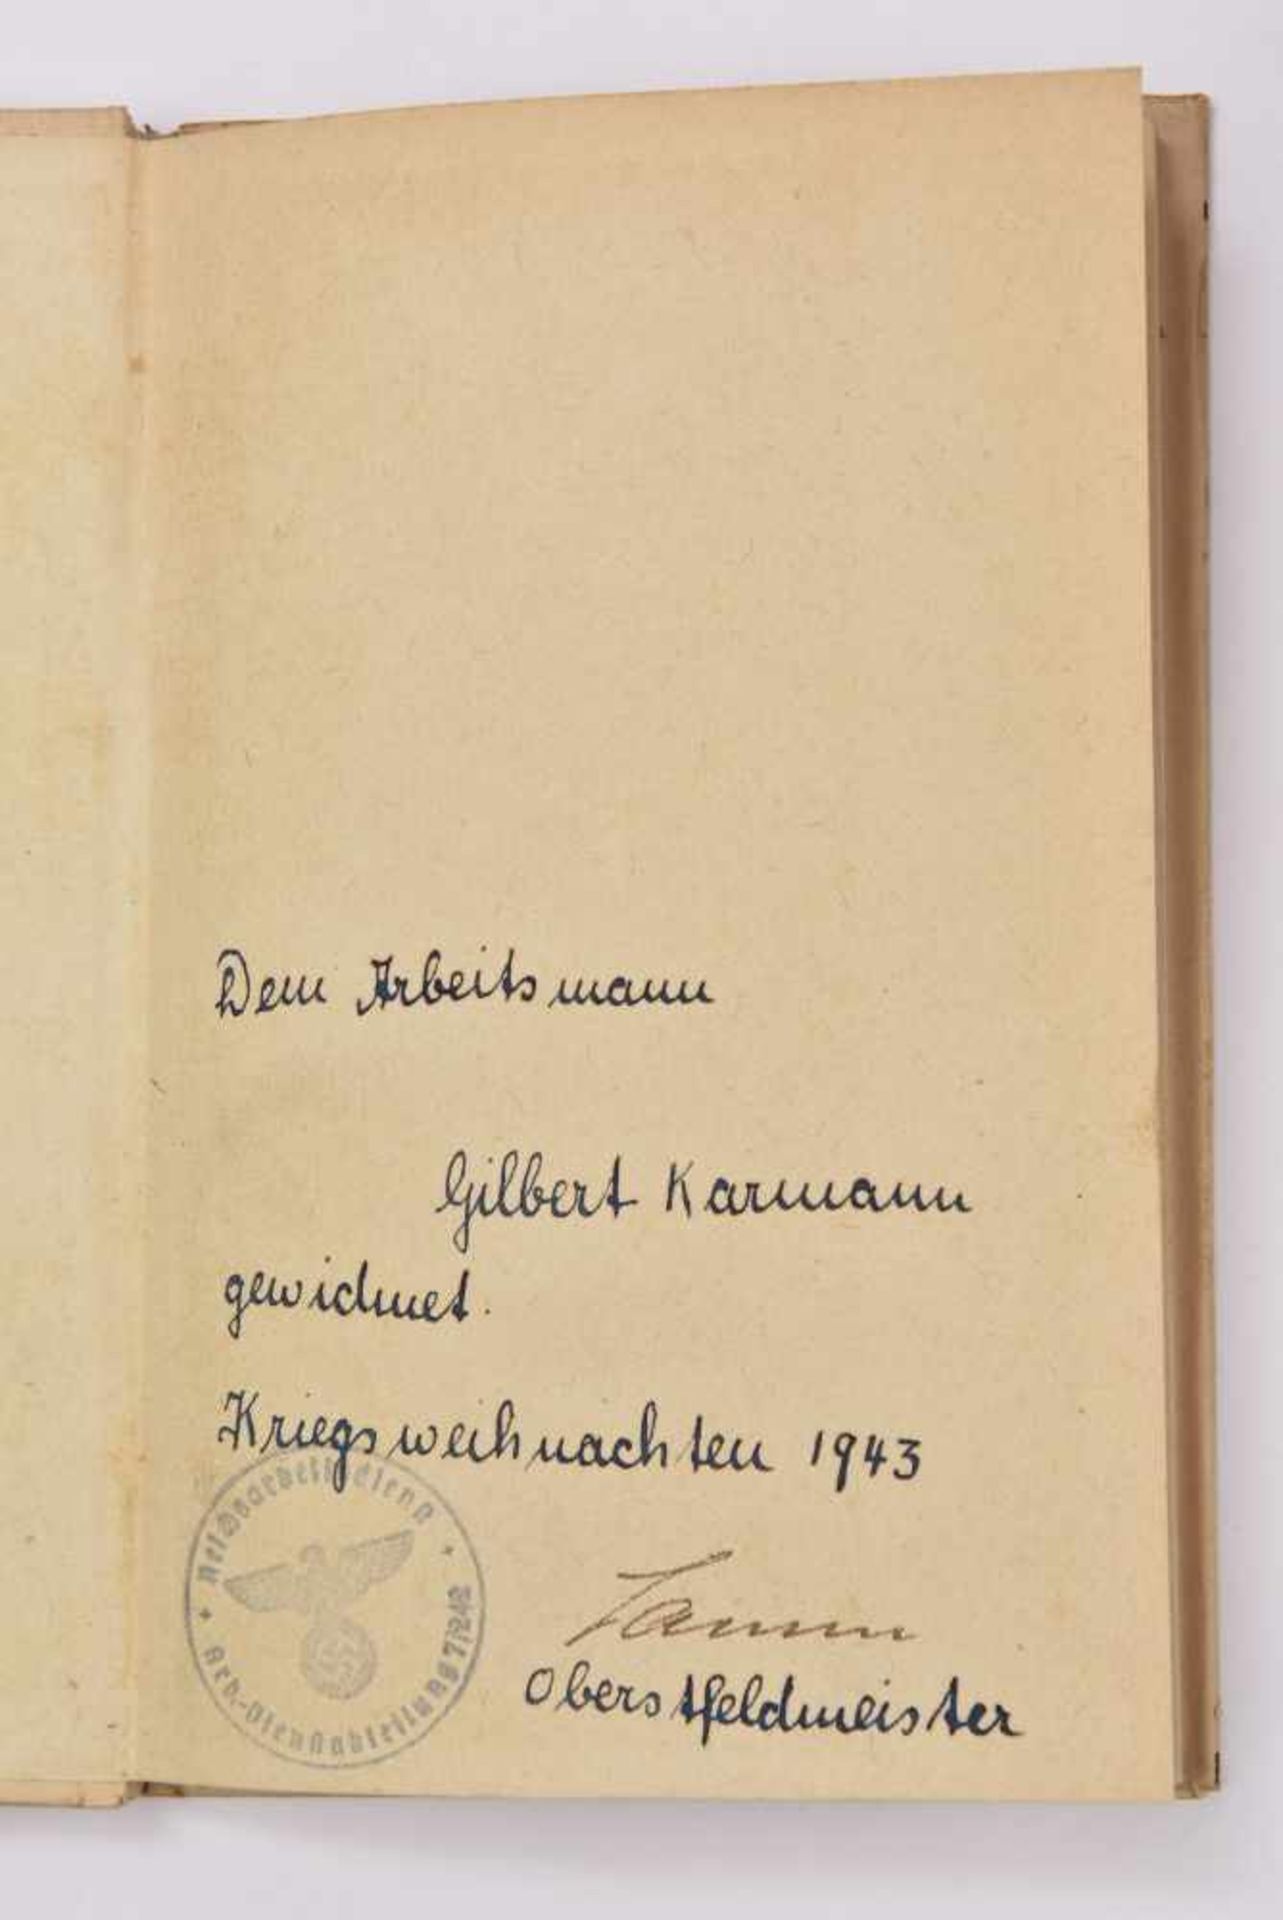 Dem Arbeitsmann
Gilbert Karmann
gewidmet.
Kriegsweihnachten 1943
Reichsarbeitsdienst
Arb.-Dienstabteilung 7/242
Oberstfeldmeister